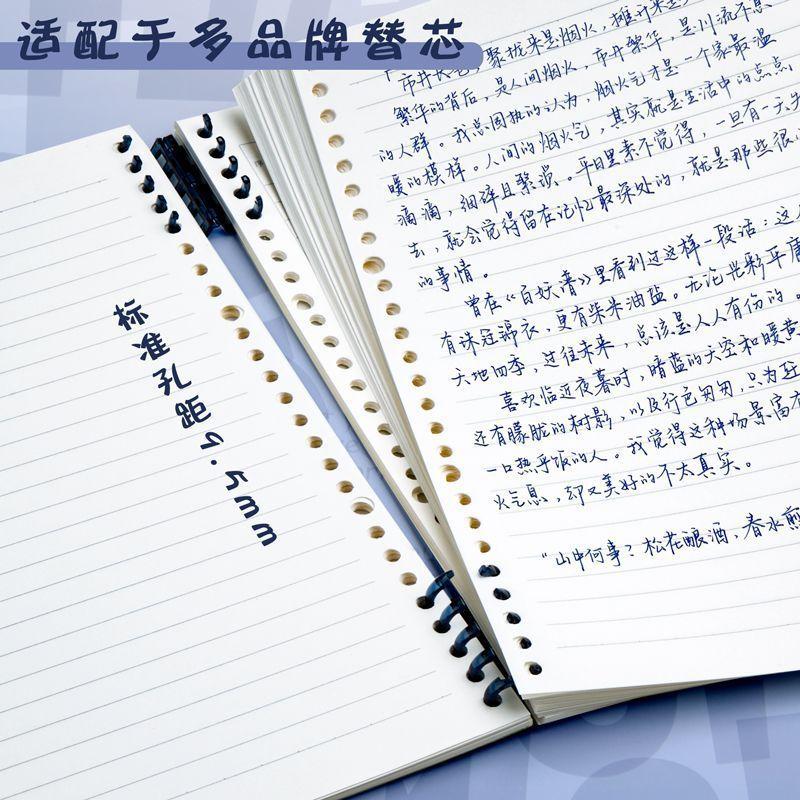 适配于多品牌替芯
标准孔距9.5mm
聚拢来是烟火，摊开来是
繁华的背后，是人间烟火，市井繁华，是川流不息
的人群。我总固执的认为，烟火气才是一个家最温
暖的模样。人间的烟火气，其实就是生活中的点点
滴滴，细碎且繁琐。平日里素不觉得，一旦有一天失
去，就会觉得留在记忆最深处的，就是那些很
的事情。
曾在《百妖谱》里看到过这样一段话：这人
有珠冠锦衣，更有柴米油盐。无论光彩平庸
天地四季，过往未来，总该是人人有份的。
喜欢临近夜暮时，暗蓝的天空和暖黄
还有朦胧的树影，以及行色匆匆，只为赶
一口热乎饭的人。我觉得这种场景富有
火气息，却又美好的不太真实。
“山中何事？松花酿酒，春水煎